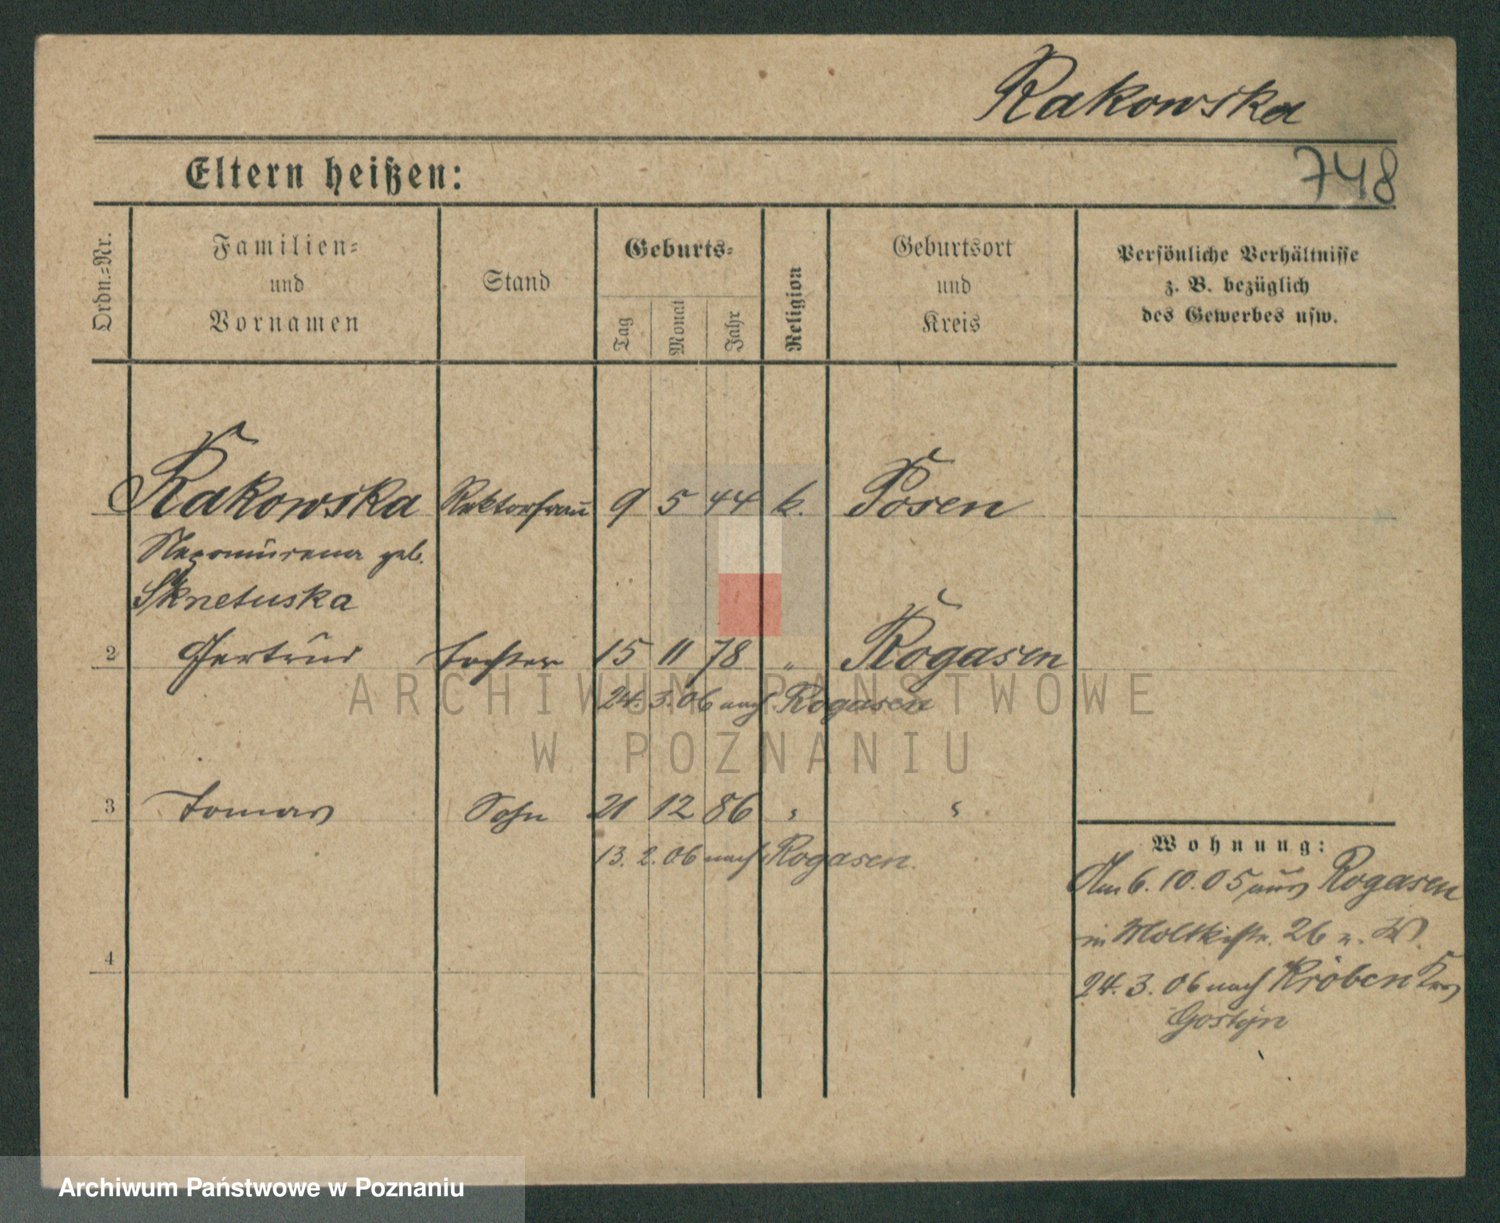 Rakowska
748
Eltern heißen:
Ordn.-Nr.
Familien-
und
Vornamen
Stand
Geburts-
Tag
Monat
Jahr
Religion
Geburtsort
und
Kreis
Persönliche Verhältnisse
z. B. bezüglich
des Gewerbes usw.
Rakowska Rektorfrau 9 5 44 k. Posen
Nepomucena geb.
Sknetuska
2 Gertrud Tochter 15 11 78 " Rogasen
24. 3. 06 nach Rogasen
ARCHIWUM PAŃSTWOWE
W POZNANIU
3 Tomas Sohn 21 12 86 " "
13. 2. 06 nach Rogasen
4
Wohnung:
Am 6. 10. 05 aus Rogasen
in Moltkestr. 26 b. W.
24. 3. 06 nach Kröben Krs
Gostyn
Archiwum Państwowe w Poznaniu